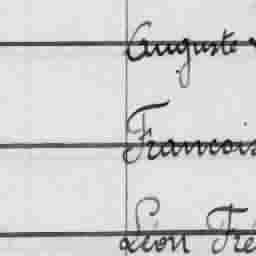 Auguste
Francois
Léon Fré